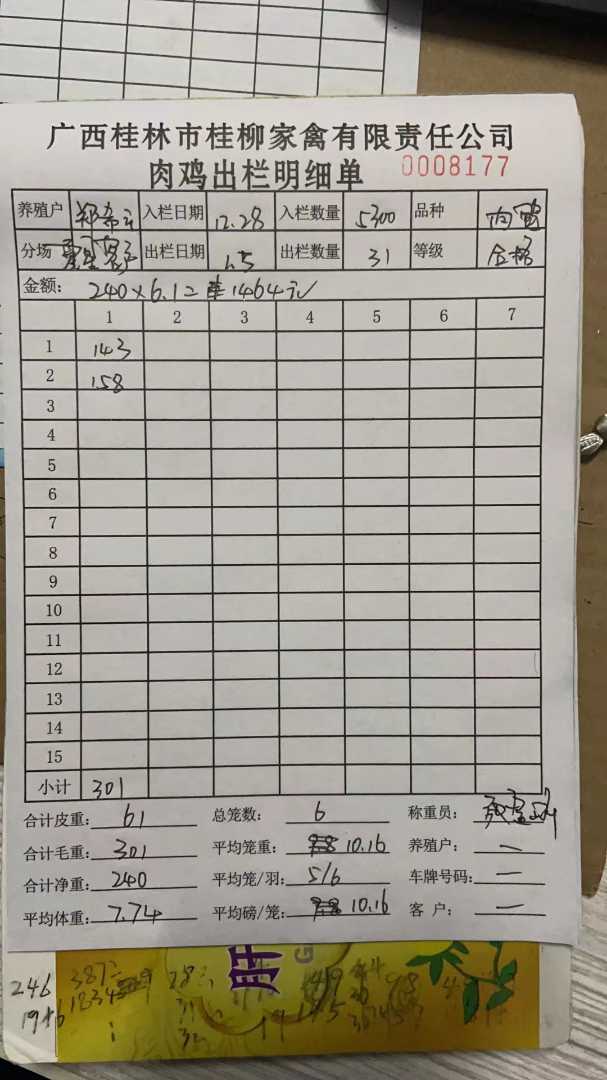 广西桂林市桂柳家禽有限责任公司
肉鸡出栏明细单 0008177
养殖户 入栏日期 12.28 入栏数量 5300 品种
分场 出栏日期 1.5 出栏数量 31 等级 合格
金额: 240×6.1=1464元
1 2 3 4 5 6 7
1 143
2 158
3
4
5
6
7
8
9
10
11
12
13
14
15
小计 301
合计皮重: 61 总笼数: 6 称重员:
合计毛重: 301 平均笼重: 10.16 养殖户: 一
合计净重: 240 平均笼/羽: 5/6 车牌号码: 一
平均体重: 7.74 平均磅/笼: 10.16 客 户: 一
246 387